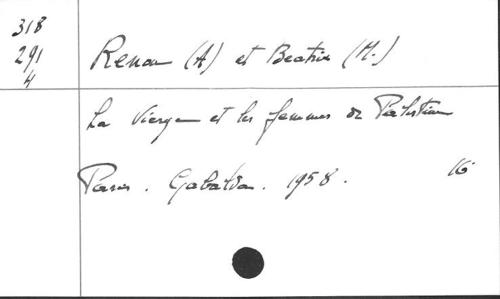 318
291
4
Renou (A) et Beatrix (M.)
La Vierge et les femmes de Palestine
Paris. Gabalda. 1958. 16